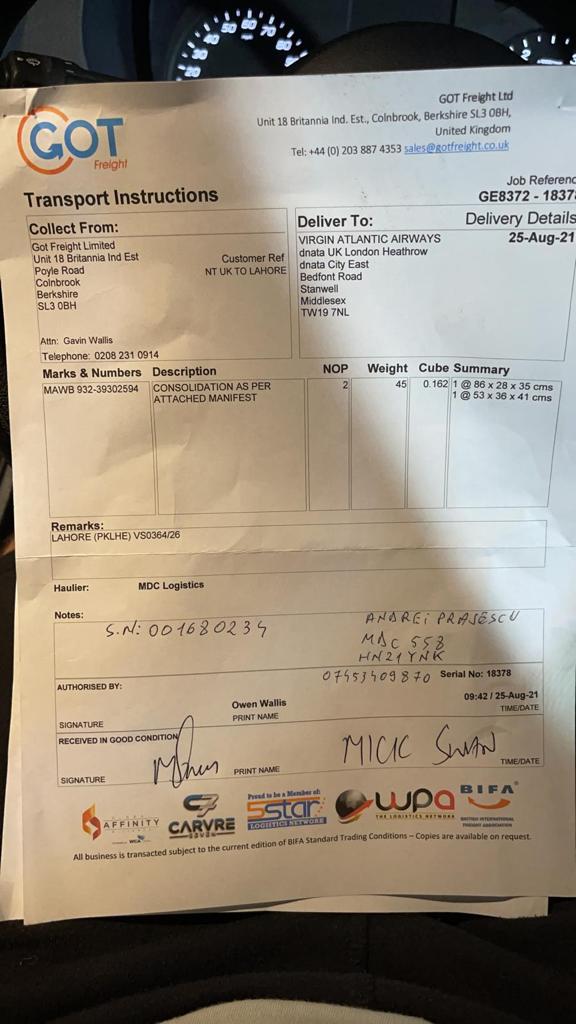 GOT
Freight
GOT Freight Ltd
Unit 18 Britannia Ind. Est., Colnbrook, Berkshire SL3 0BH,
United Kingdom
Tel: +44 (0) 203 887 4353 sales@gotfreight.co.uk
Transport Instructions
Job Referenc
GE8372 - 1837
Collect From:
Got Freight Limited
Unit 18 Britannia Ind Est
Poyle Road
Colnbrook
Berkshire
SL3 0BH
Customer Ref
NT UK TO LAHORE
Attn: Gavin Wallis
Telephone: 0208 231 0914
Deliver To:
VIRGIN ATLANTIC AIRWAYS
dnata UK London Heathrow
dnata City East
Bedfont Road
Stanwell
Middlesex
TW19 7NL
Delivery Details
25-Aug-21
Marks & Numbers Description NOP Weight Cube Summary
MAWB 932-39302594 CONSOLIDATION AS PER 2 45 0.162 1 @ 86 x 28 x 35 cms
ATTACHED MANIFEST 1 @ 53 x 36 x 41 cms
Remarks:
LAHORE (PKLHE) VS0364/26
Haulier: MDC Logistics
Notes:
S.N: 001680234
ANDREI PRAJESCU
MDC 558
HN21YNK
07453409870
Serial No: 18378
AUTHORISED BY:
09:42 / 25-Aug-21
TIME/DATE
Owen Wallis
SIGNATURE PRINT NAME
RECEIVED IN GOOD CONDITION
MICK SWAN
SIGNATURE PRINT NAME TIME/DATE
AFFINITY
WCA
C7
CARVRE
SEVEN
Proud to be a Member of:
5star
LOGISTICS NETWORK
wpa
THE LOGISTICS NETWORK
BIFA
BRITISH INTERNATIONAL
FREIGHT ASSOCIATION
All business is transacted subject to the current edition of BIFA Standard Trading Conditions – Copies are available on request.